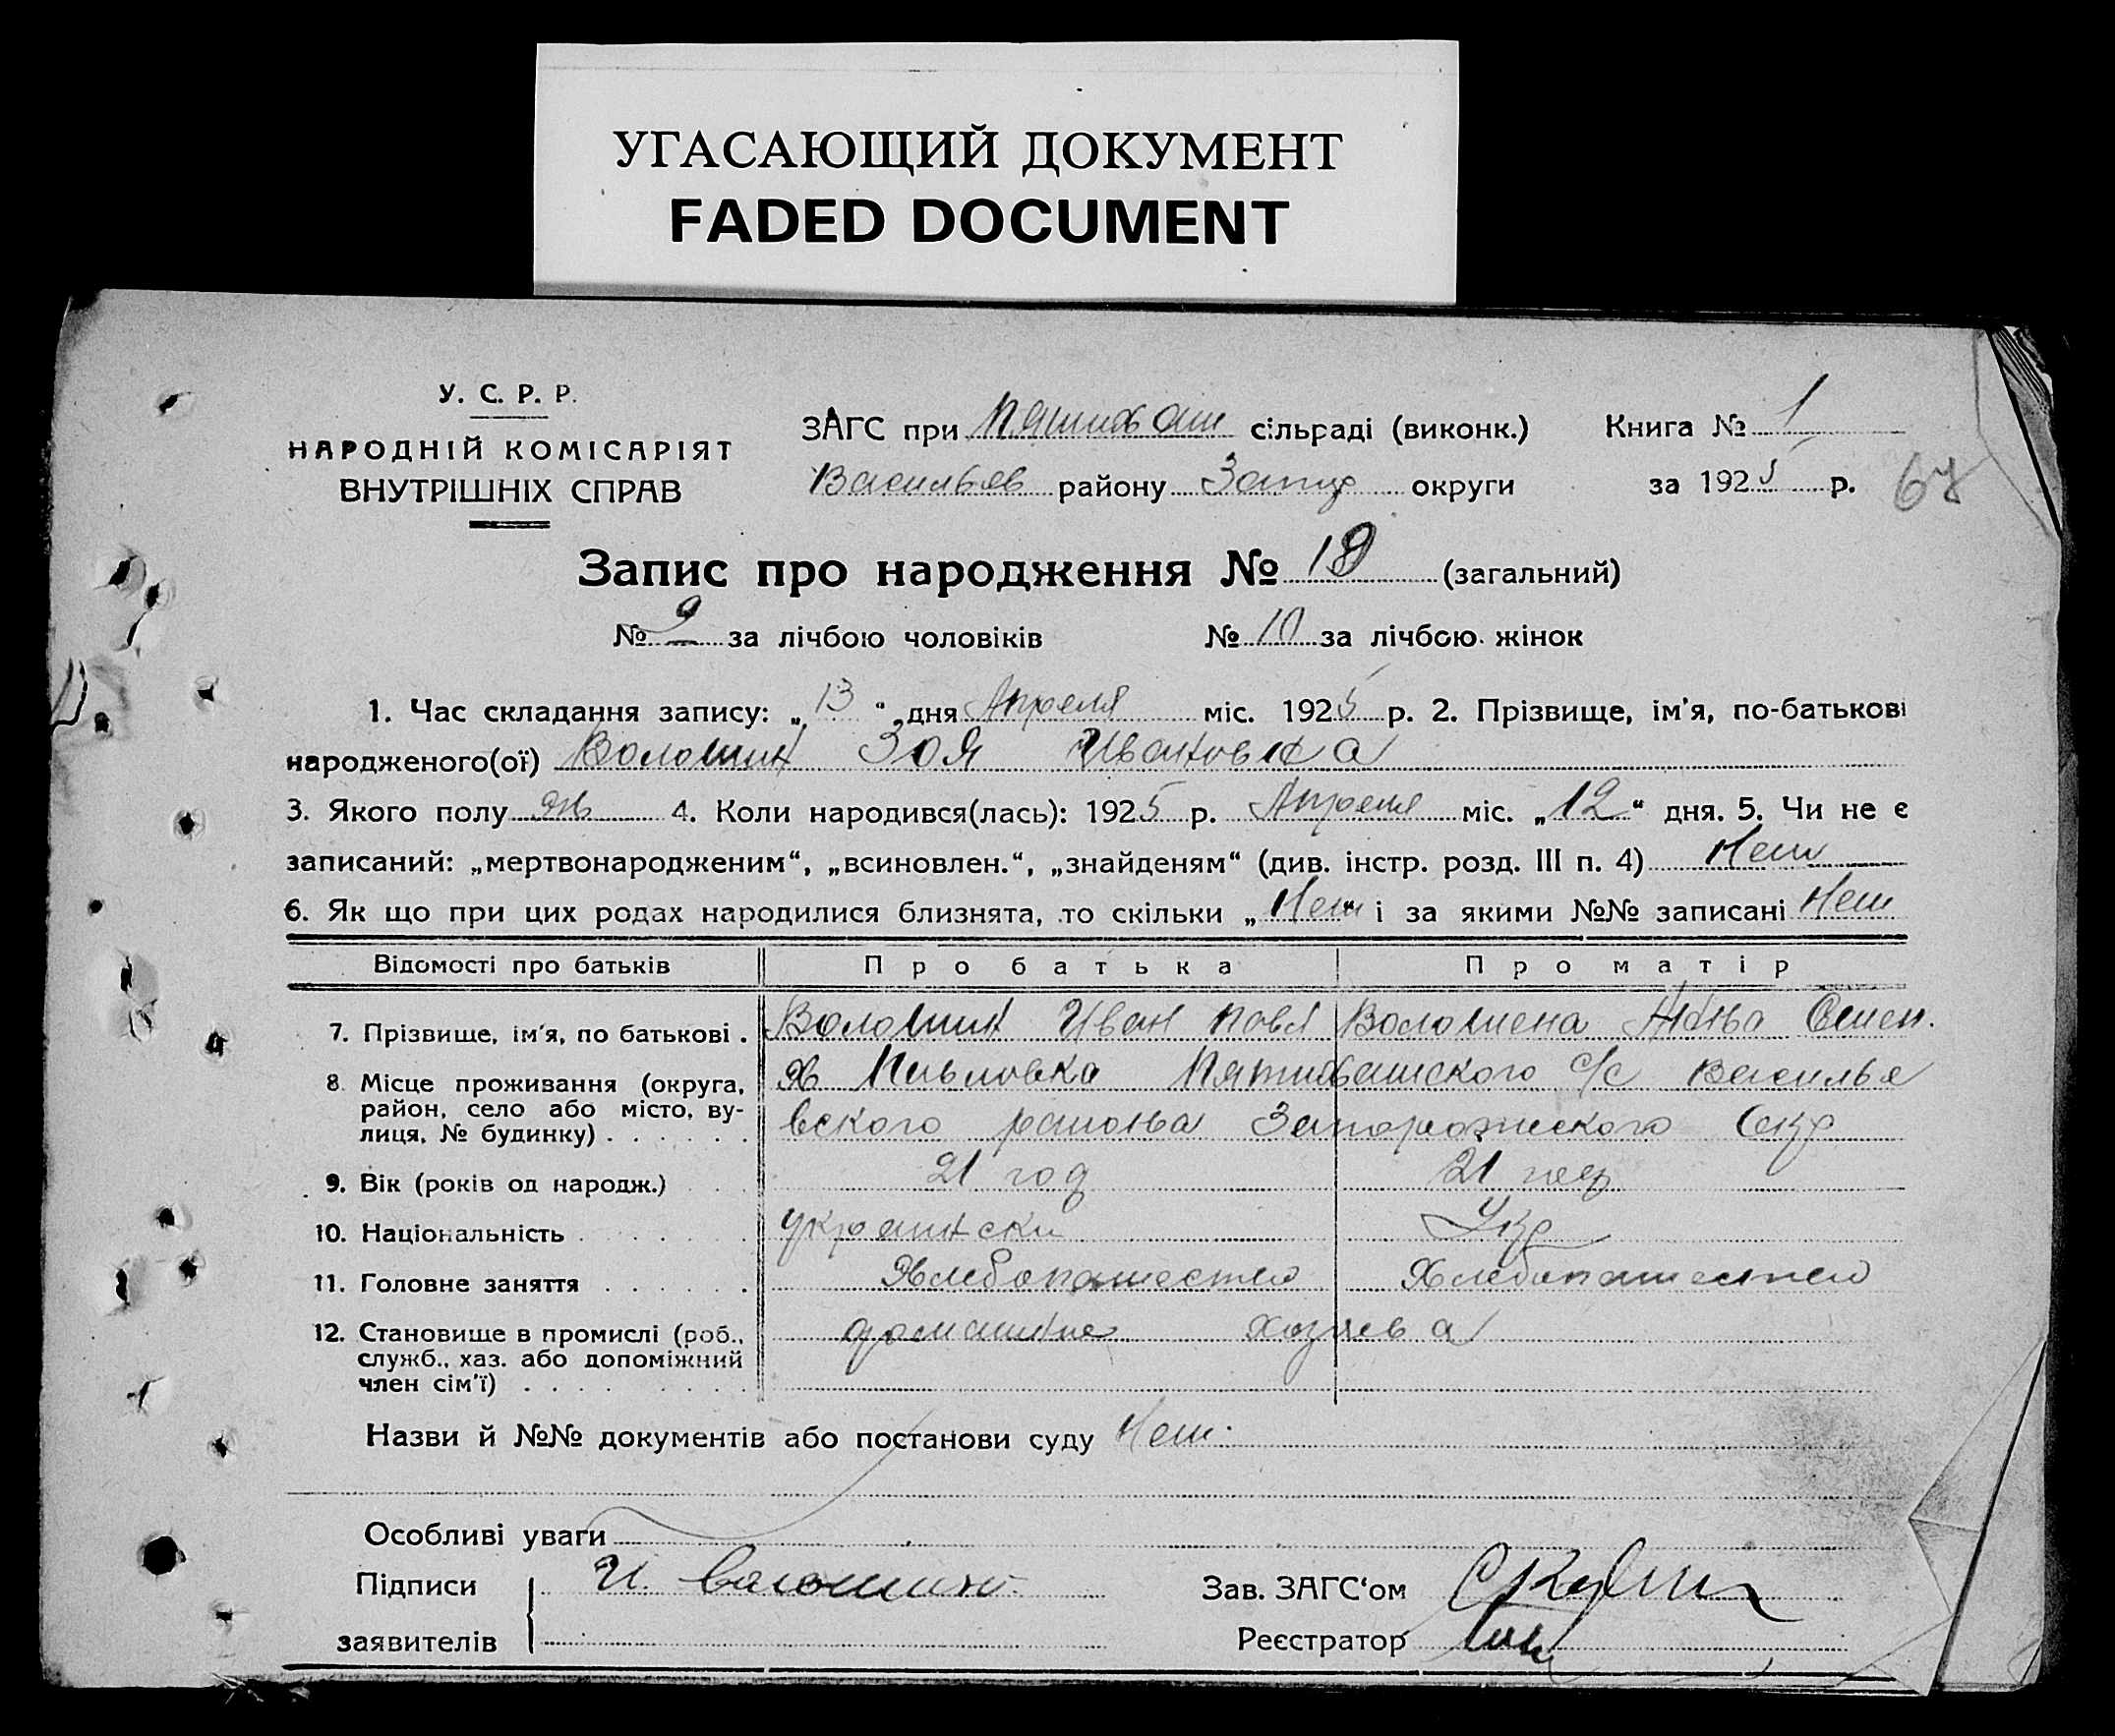 УГАСАЮЩИЙ ДОКУМЕНТ
FADED DOCUMENT
У. С. Р. Р.
НАРОДНІЙ КОМІСАРІЯТ
ВНУТРІШНІХ СПРАВ
ЗАГС при Пятихат сільраді (виконк.) Книга № 1
Васильев району Запор округи за 1925 р. 67
Запис про народження № 19 (загальний)
№ 9 за лічбою чоловіків № 10 за лічбою жінок
1. Час складання запису: „ 13 “ дня Апреля міс. 1925 р. 2. Прізвище, ім'я, по-батькові
народженого(ої) Волошин Зоя Ивановна
3. Якого полу жн 4. Коли народився(лась): 1925 р. Апреля міс. „ 12 “ дня. 5. Чи не є
записаний: „мертвонародженим“, „всиновлен.“, „знайденям“ (див. інстр. розд. III п. 4) Нет
6. Як що при цих родах народилися близнята, то скільки „ Нет “ і за якими №№ записані Нет
Відомості про батьків Про батька Про матір
7. Прізвище, ім'я, по батькові . Волошин Иван Павл Волошена Семен.
8. Місце проживання (округа, х Павловка Пятихатского с/с Василье
район, село або місто, ву- вского района Запорожского Окр
лиця, № будинку) . . . . . .
9. Вік (років од народж.) 21 год 21 год
10. Національність . . . . . . . украински Укр
11. Головне заняття . . . . . . Хлебопашество Хлебопашество
12. Становище в промислі (роб., домашние хозяева
служб., хаз. або допоміжний
член сім'ї) . . . . . . . . .
Назви й №№ документів або постанови суду Нет.
Особливі уваги
Підписи И. Волошин Зав. ЗАГС‘ом
заявителів Реєстратор